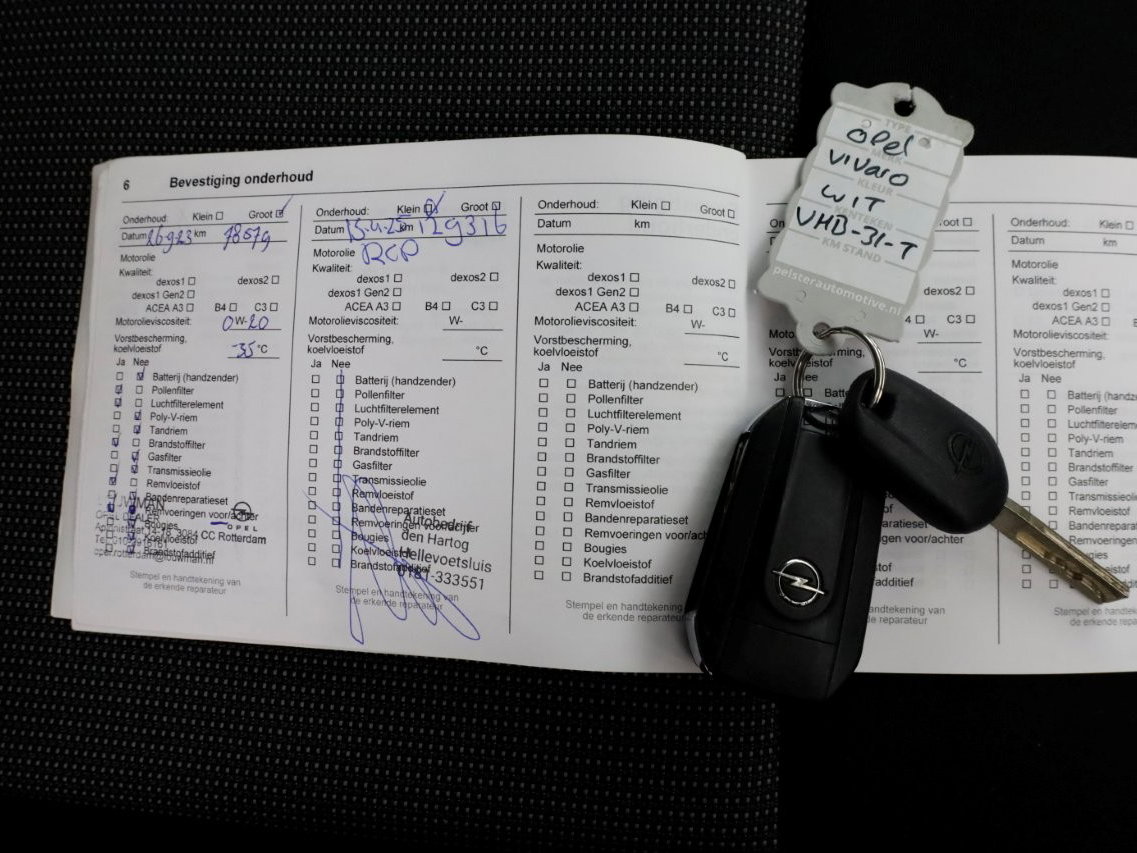 6 Bevestiging onderhoud
Onderhoud: Klein Groot
Datum 26923 km 78579
Motorolie
Kwaliteit:
dexos1 dexos2
dexos1 Gen2
ACEA A3 B4 C3
Motorolieviscositeit: 0W-20
Vorstbescherming,
koelvloeistof -35 °C
Ja Nee
Batterij (handzender)
Pollenfilter
Luchtfilterelement
Poly-V-riem
Tandriem
Brandstoffilter
Gasfilter
Transmissieolie
Remvloeistof
Bandenreparatieset
Remvoeringen voor/achter
Bougies
Koelvloeistof
Brandstofadditief
OPEL
3084 CC Rotterdam
Stempel en handtekening van
de erkende reparateur
Onderhoud: Klein Groot
Datum 15-4-25 km 129316
Motorolie
Kwaliteit:
dexos1 dexos2
dexos1 Gen2
ACEA A3 B4 C3
Motorolieviscositeit: W-
Vorstbescherming,
koelvloeistof °C
Ja Nee
Batterij (handzender)
Pollenfilter
Luchtfilterelement
Poly-V-riem
Tandriem
Brandstoffilter
Gasfilter
Transmissieolie
Remvloeistof
Bandenreparatieset
Remvoeringen voor/achter
Bougies
Koelvloeistof
Brandstofadditief
Autobedrijf
den Hartog
Hellevoetsluis
0181-333551
Stempel en handtekening van
de erkende reparateur
Onderhoud: Klein Groot
Datum km
Motorolie
Kwaliteit:
dexos1 dexos2
dexos1 Gen2
ACEA A3 B4 C3
Motorolieviscositeit: W-
Vorstbescherming,
koelvloeistof °C
Ja Nee
Batterij (handzender)
Pollenfilter
Luchtfilterelement
Poly-V-riem
Tandriem
Brandstoffilter
Gasfilter
Transmissieolie
Remvloeistof
Bandenreparatieset
Remvoeringen voor/ach
Bougies
Koelvloeistof
Brandstofadditief
Stempel en handtekening
de erkende reparateur
TYPE
Opel
MERK
Vivaro
KLEUR
WIT
KENTEKEN
VHB-31-T
KM STAND
pelsterautomotive.nl
dexos2
C3
W-
°C
Ja
voor/achter
ekening van
reparateur
Onderhoud: Klein
Datum km
Motorolie
Kwaliteit:
dexos1
dexos1 Gen2
ACEA A3
Motorolieviscositeit:
Vorstbescherming,
koelvloeistof
Ja Nee
Batterij (handz
Pollenfilter
Luchtfiltereleme
Poly-V-riem
Tandriem
Brandstoffilter
Gasfilter
Transmissieoli
Remvloeistof
Bandenrepara
Stempel en h
de erkende